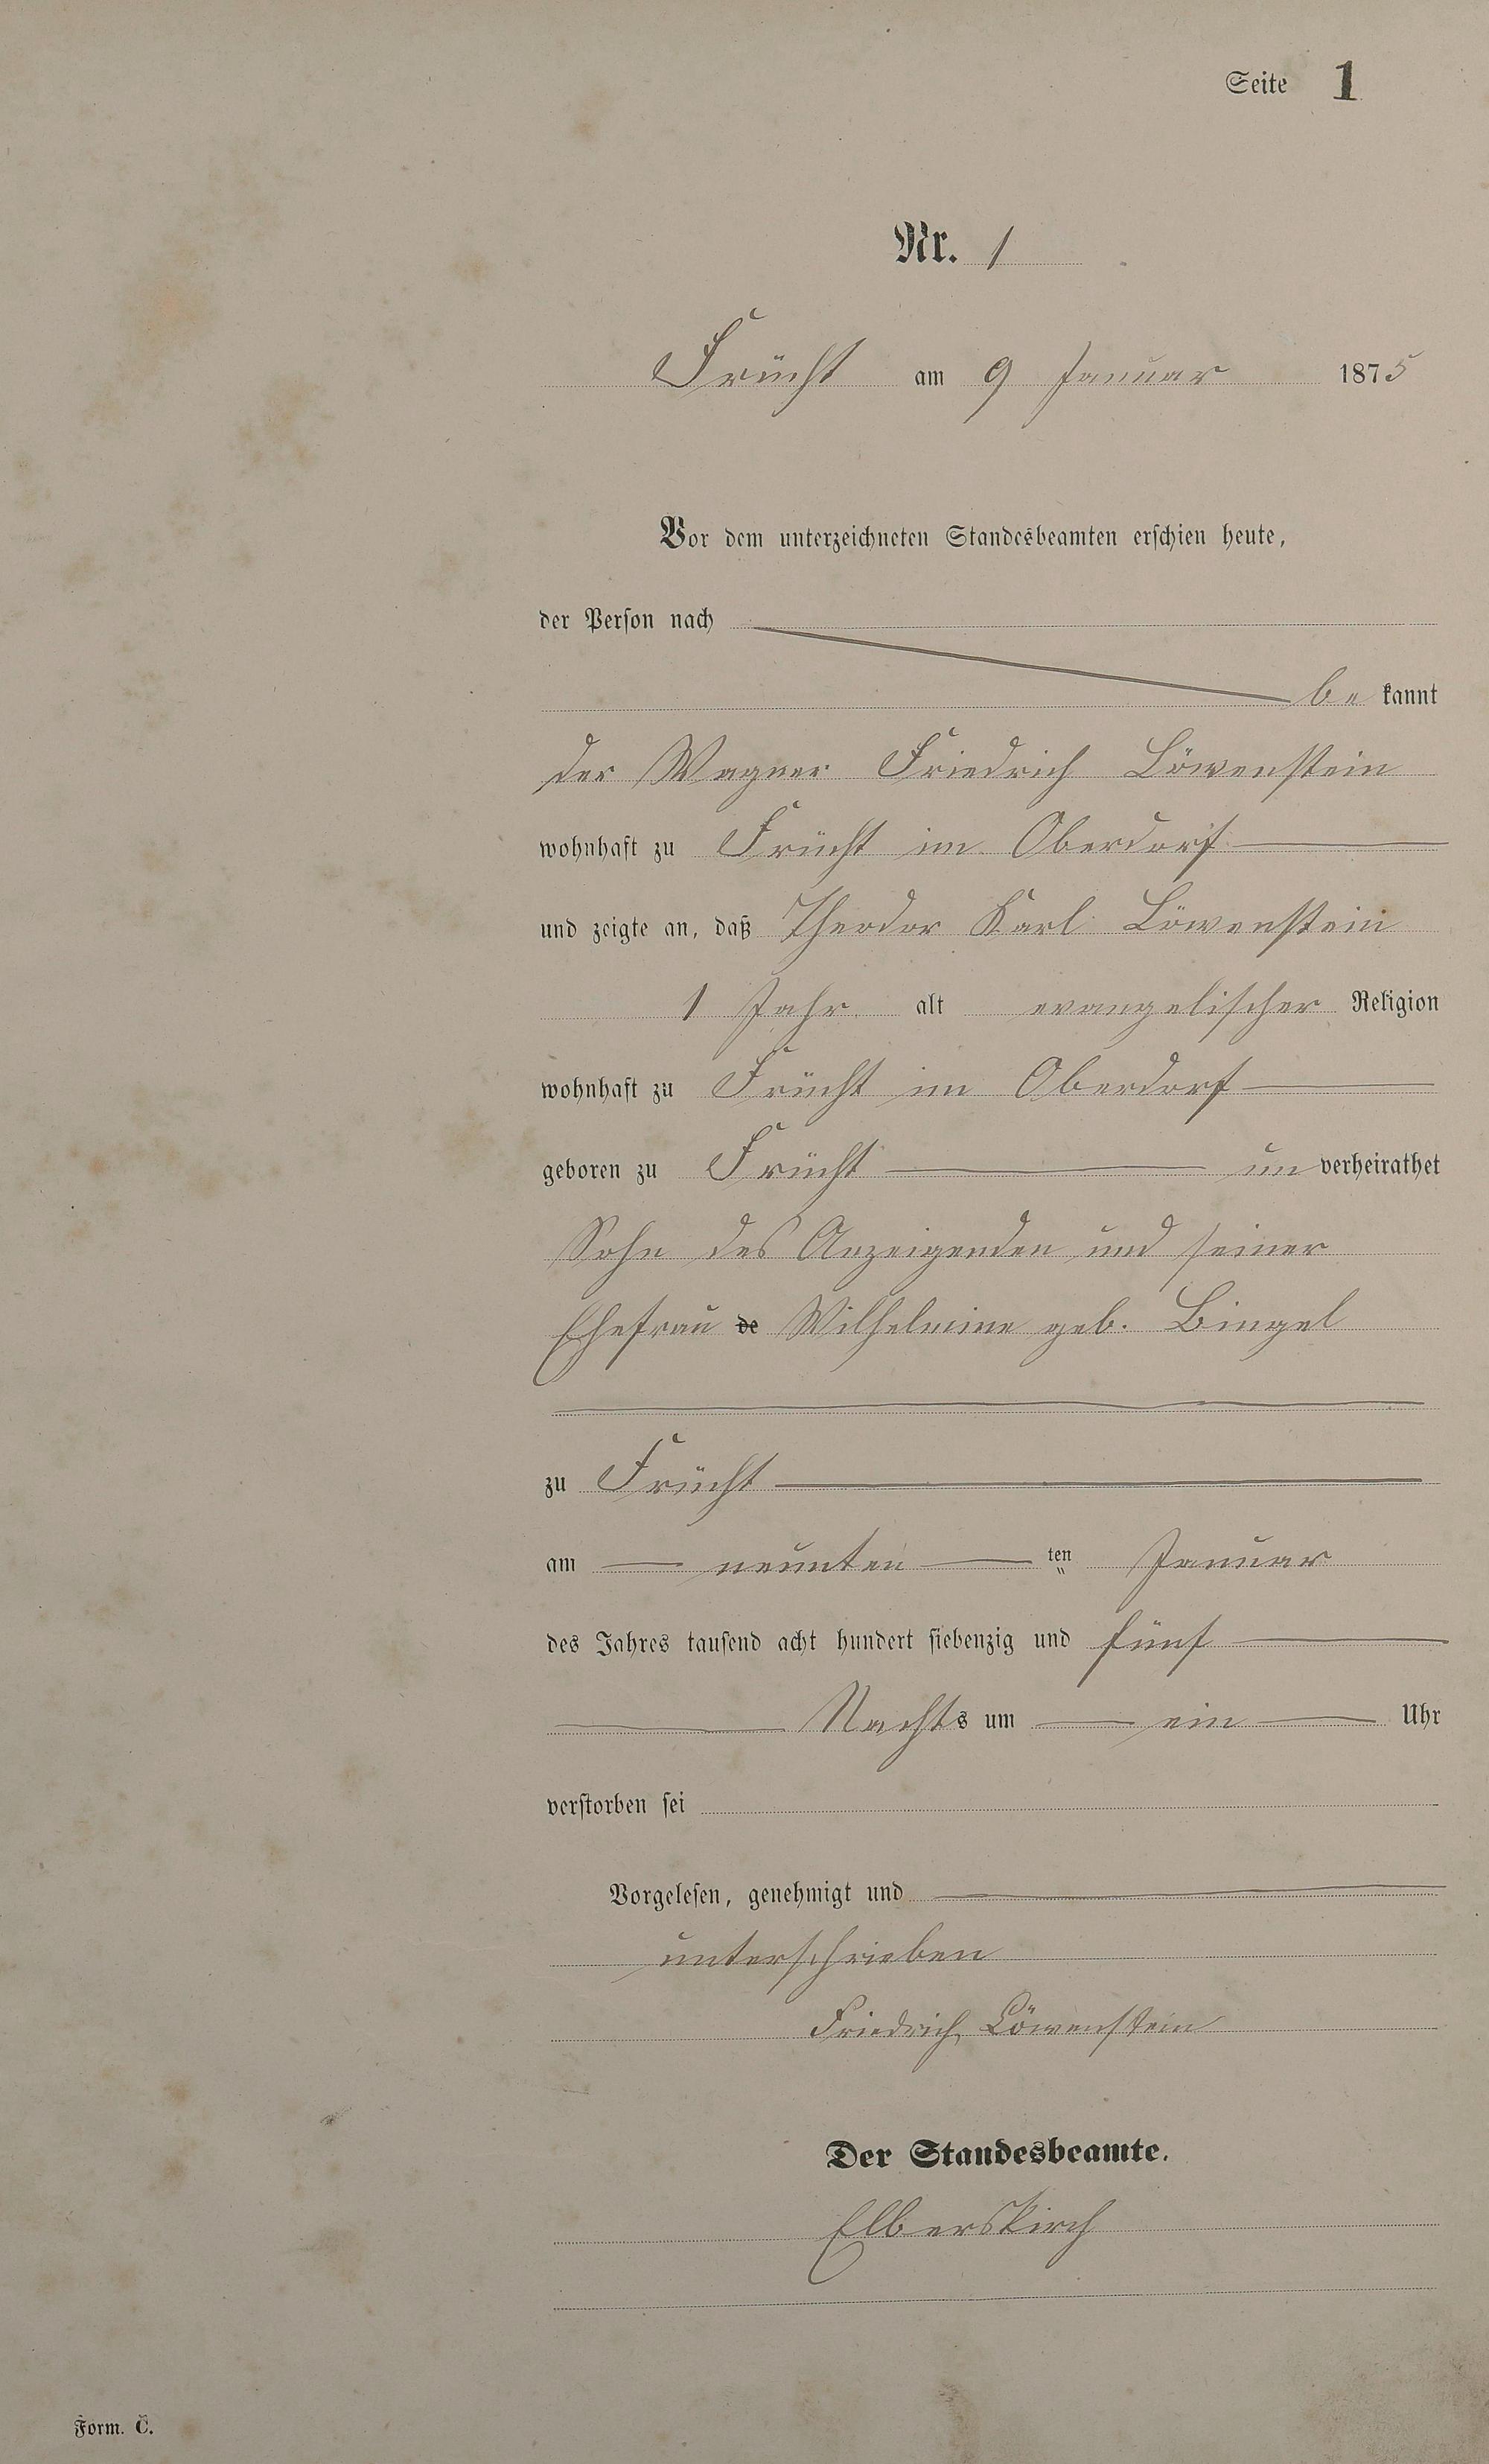 Seite 1
Nr. 1
Frücht am 9 Januar 1875
Vor dem unterzeichneten Standesbeamten erschien heute,
der Person nach
be kannt
der Wagner Friedrich Löwenstein
wohnhaft zu Frücht im Oberdorf
und zeigte an, daß Theodor Karl Löwenstein
1 Jahr alt evangelischer Religion
wohnhaft zu Frücht im Oberdorf
geboren zu Frücht un verheirathet
Sohn des Anzeigenden und seiner
Ehefrau de Wilhelmine geb. Bingel
zu Frücht
am neunten ten Januar
des Jahres tausend acht hundert siebenzig und fünf
Nachts um ein Uhr
verstorben sei
Vorgelesen, genehmigt und
unterschrieben
Friedrich Löwenstein
Der Standesbeamte.
Elberskirch
Form. C.